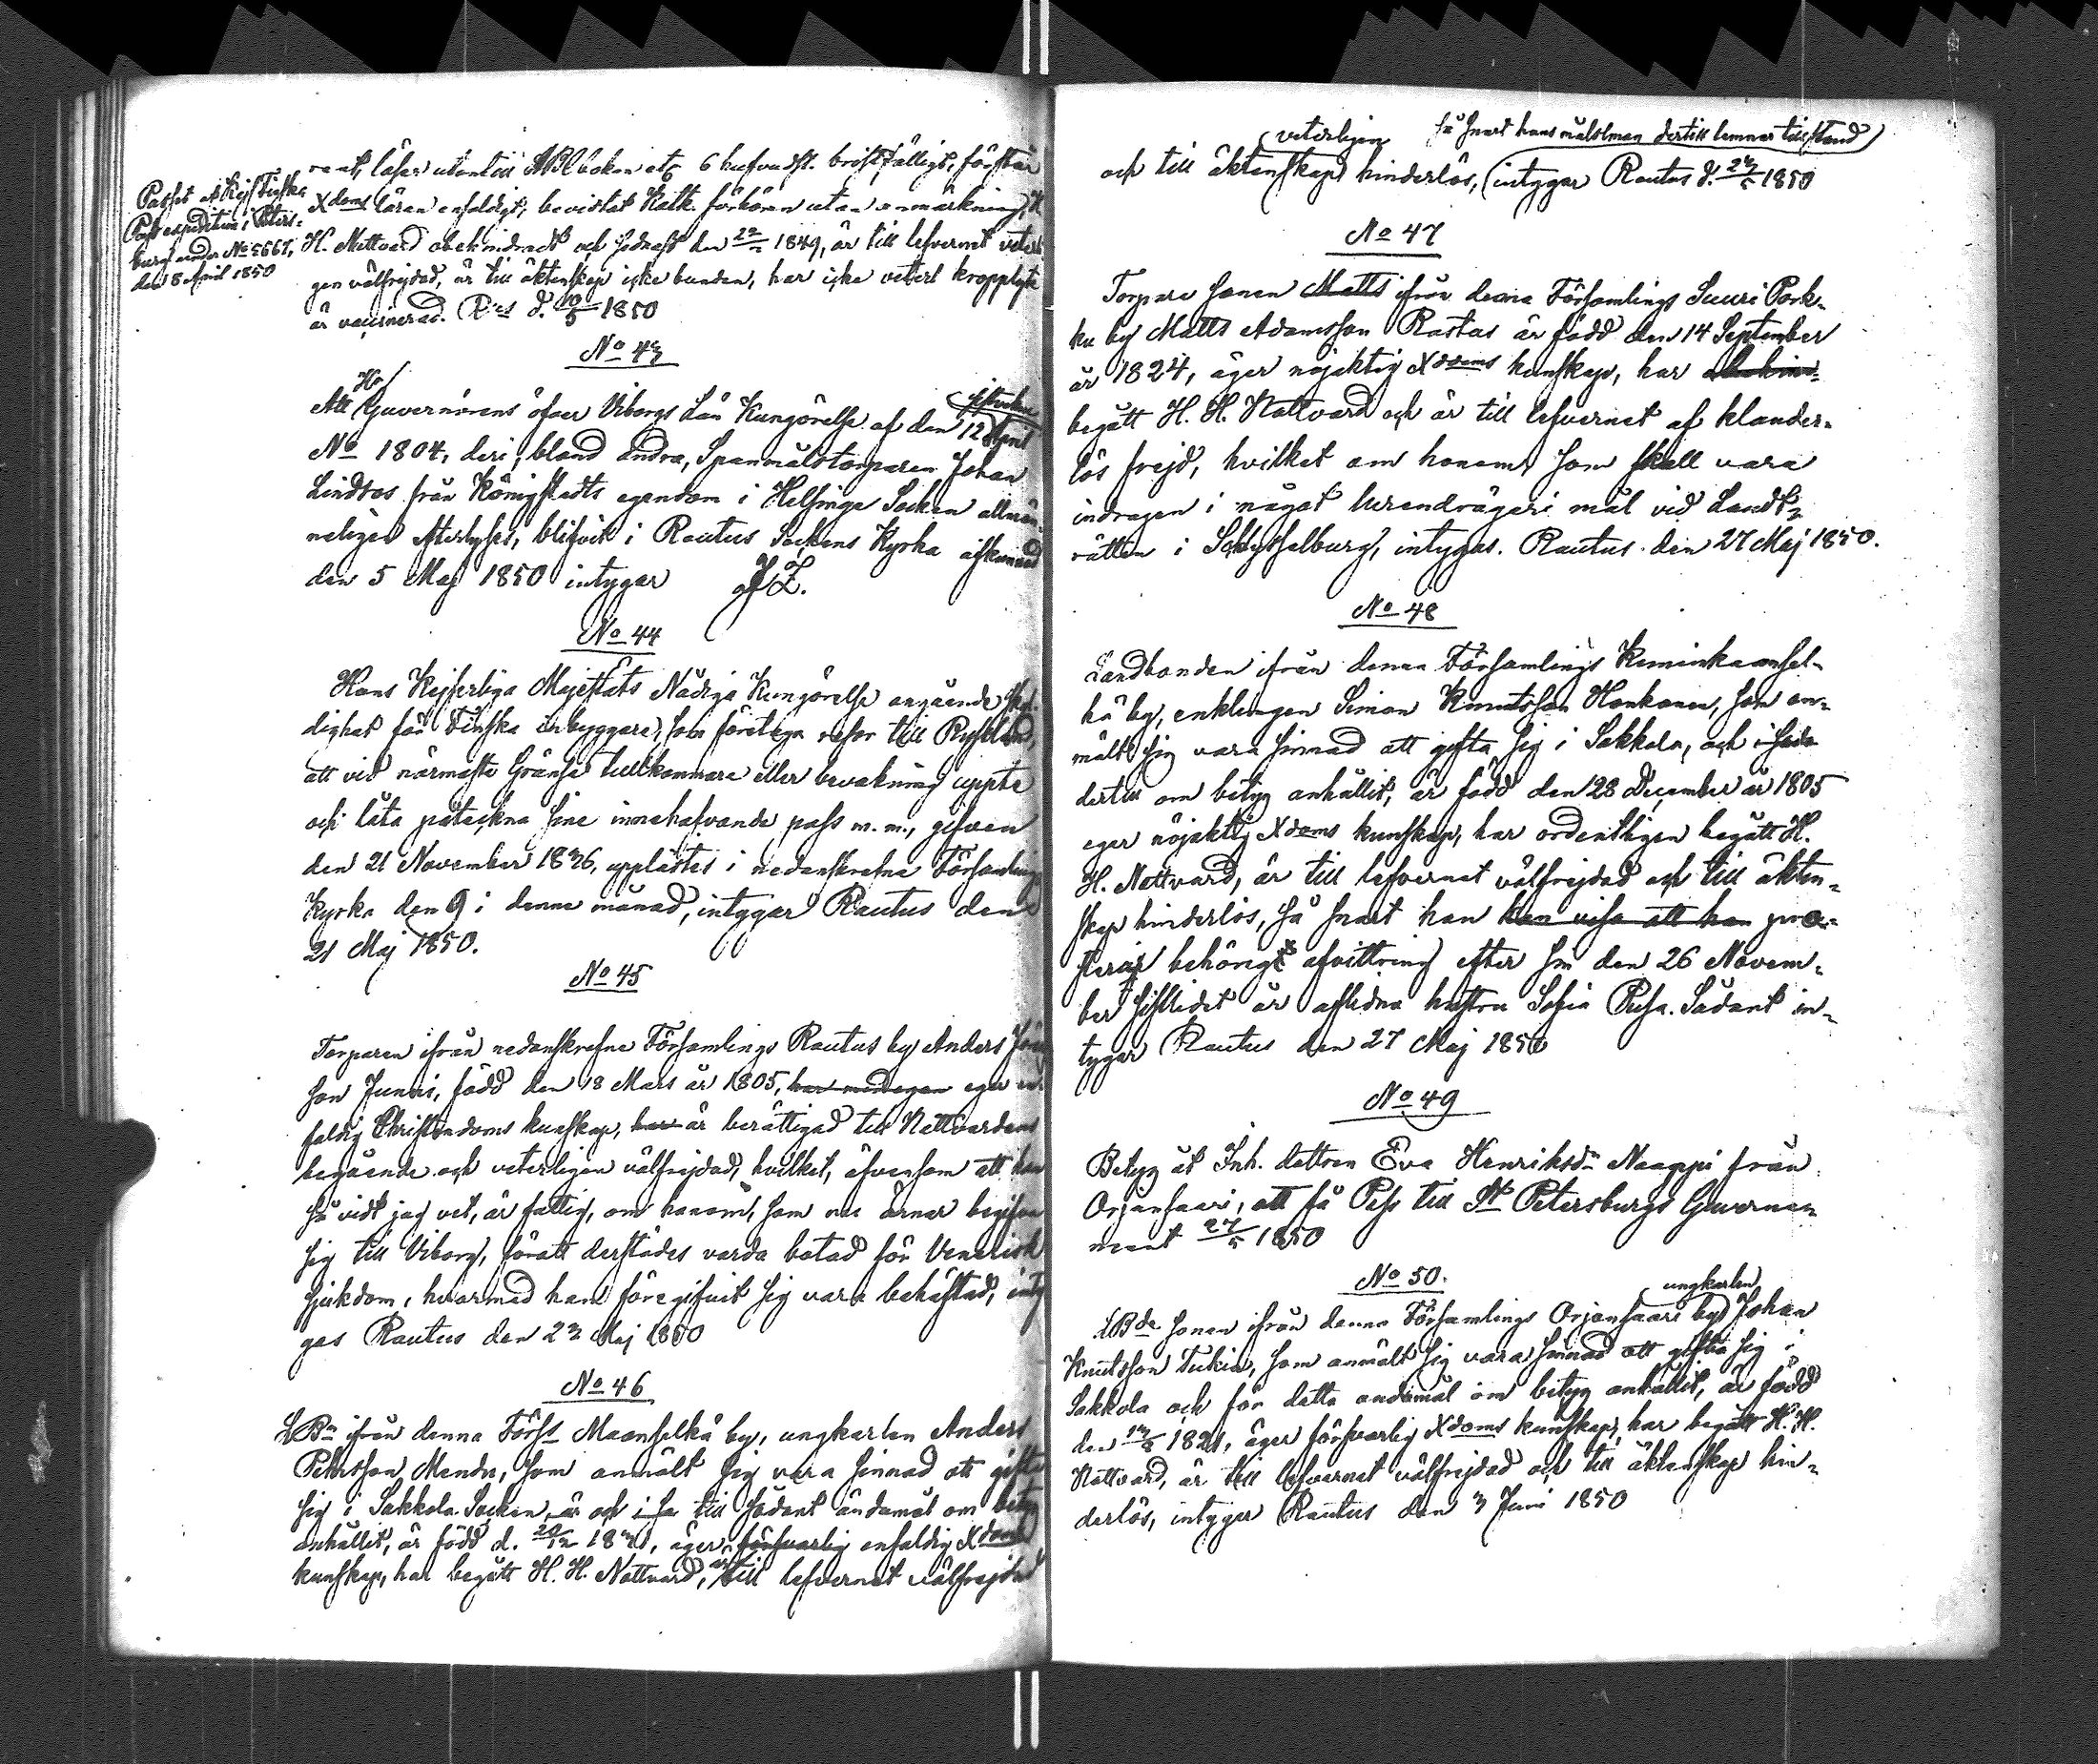 Passet ifr. Kejs. Finska
Passexpeditionen i Peters-
burg under No 5667,
den 18 April 1850
vant, läser utantill ABC boken etc 6 hufvudst. bristfälligt, förstår
Xdoms läran enfaldigt, bevistat Katk. förhören utan anmärkning, H.
H. Nattvard obehindradt och sednast den 1849, är till lefvernet veterli
gen välfrejdad, är till äktenskap icke bunden, har icke veterl. kroppslyte
är vaccinerad. R:us d. 10/5 1850
No 43
Att Hr Guvernörens öfver Viborgs Län Kungörelse af den 12 April
sistvikne
No 1804, deri, bland andra, Spanmålstorparen Johan
Lindroos från Königstedts egendom i Helsinge Socken allmän-
neligen efterlyses, blifvit i Rautus Sockens Kyrka afkunnad
den 5 Maj 1850 intygar
No 44
Hans Kejserliga Majestäts Nådiga Kungörelse angående skyl-
dighet för Finska inbyggare, som företaga resor till Ryssland,
att vid närmaste Gränse tullkammare eller bevakning uppte
och låta påteckna sine innehafvande pass m. m., gifven
den 21 November 1836, upplästes i nedanskrefne Församlings
Kyrka den 9 i denne månad, intygar Rautus den
21 Maj 1850.
No 45
Torparen ifrån nedanskrefne Församlings Rautus by Anders Jöns
son Junni, född den 18 Mars år 1805, har medegen eger en-
faldig Christendoms kunskap, har är berättigad till Nattvardens
begående och veterligen välfrejdad, hvilket, äfvensom att han
så vidt jag vet, är fattig, om honom, som nu ärnar begifva
sig till Viborg, föratt derstädes varda botad för Venerisk
sjukdom, hvarmed han föregifvit sig vara behäftad, inty
gas Rautus den 23 Maj 1850
No 46
LBn ifrån denna Förss Maanselkä by, ungkarlen Anders
Pehrsson Mendu, som anmält sig vara sinnad att gifta
sig i Sakkola Socken, är och i sa till sådant ändamål om betyg
anhållit, är född d. 20/12 18, äger försvarlig enfaldig Xdoms
kunskap, har begått H. H. Nattvard, är till lefvernet välfrejdad
veterligen så snart hans målsman dertill lemnar tillstånd
och till äktenskap hinderlös, intygar Rautus d. 1850
No 47
Torpare sonen Matts ifrån denna Församlings Suuri Pork-
ku by Matts Adamsson Rastas är född den 14 September
år 1824, äger nöjaktig Xdoms kunskap, har obehind-
begått H. H. Nattvard och är till lefvernet af klander-
lös frejd, hvilket om honom, som skall vara
indragen i något lurendrägeri mål vid Landt-
rätten i Schlysselburg, intygas. Rautus den 27 Maj 1850.
No 48
Landbonden ifrån denna Församlings Keminkaansel-
kä by, enklingen Simon Knutsson Honkanen, som an-
mält sig vara sinnad att gifta sig i Sakkola, och i
dertill om betyg anhållit, är född den 28 December år 1805
eger nöjaktig Xdoms kunskap, har ordentligen begått H.
H. Nattvard, är till lefvernet välfrejdad och till äkten-
skap hinderlös, så snart han kan visa att han præ-
sterar behörig afvittring efter sin den 26 Novem-
ber sistlidet år aflidna hustru Sofia Pusa. Sådant in-
tygar Rautus den 27 Maj 1850
No 49
Betyg åt Inh. dottren Eva Henriksdr Naappi från
Orjansaari, att få Pass till St Petersburgs Guverne-
ment 27/5 1850
No 50.
ungkarlen
LBde sonen ifrån denna Församlings Orjansaari by Johan
Knutsson Tukia, som anmält sig vara sinnad att gifta sig i
Sakkola och för detta ändamål om betyg anhållit, är född
den 1821, äger försvarlig Xdoms kunskap, har begått H. H.
Nattvard, är till lefvernet välfrejdad och till äktenskap hin-
derlös, intygar Rautus den 3 Juni 1850